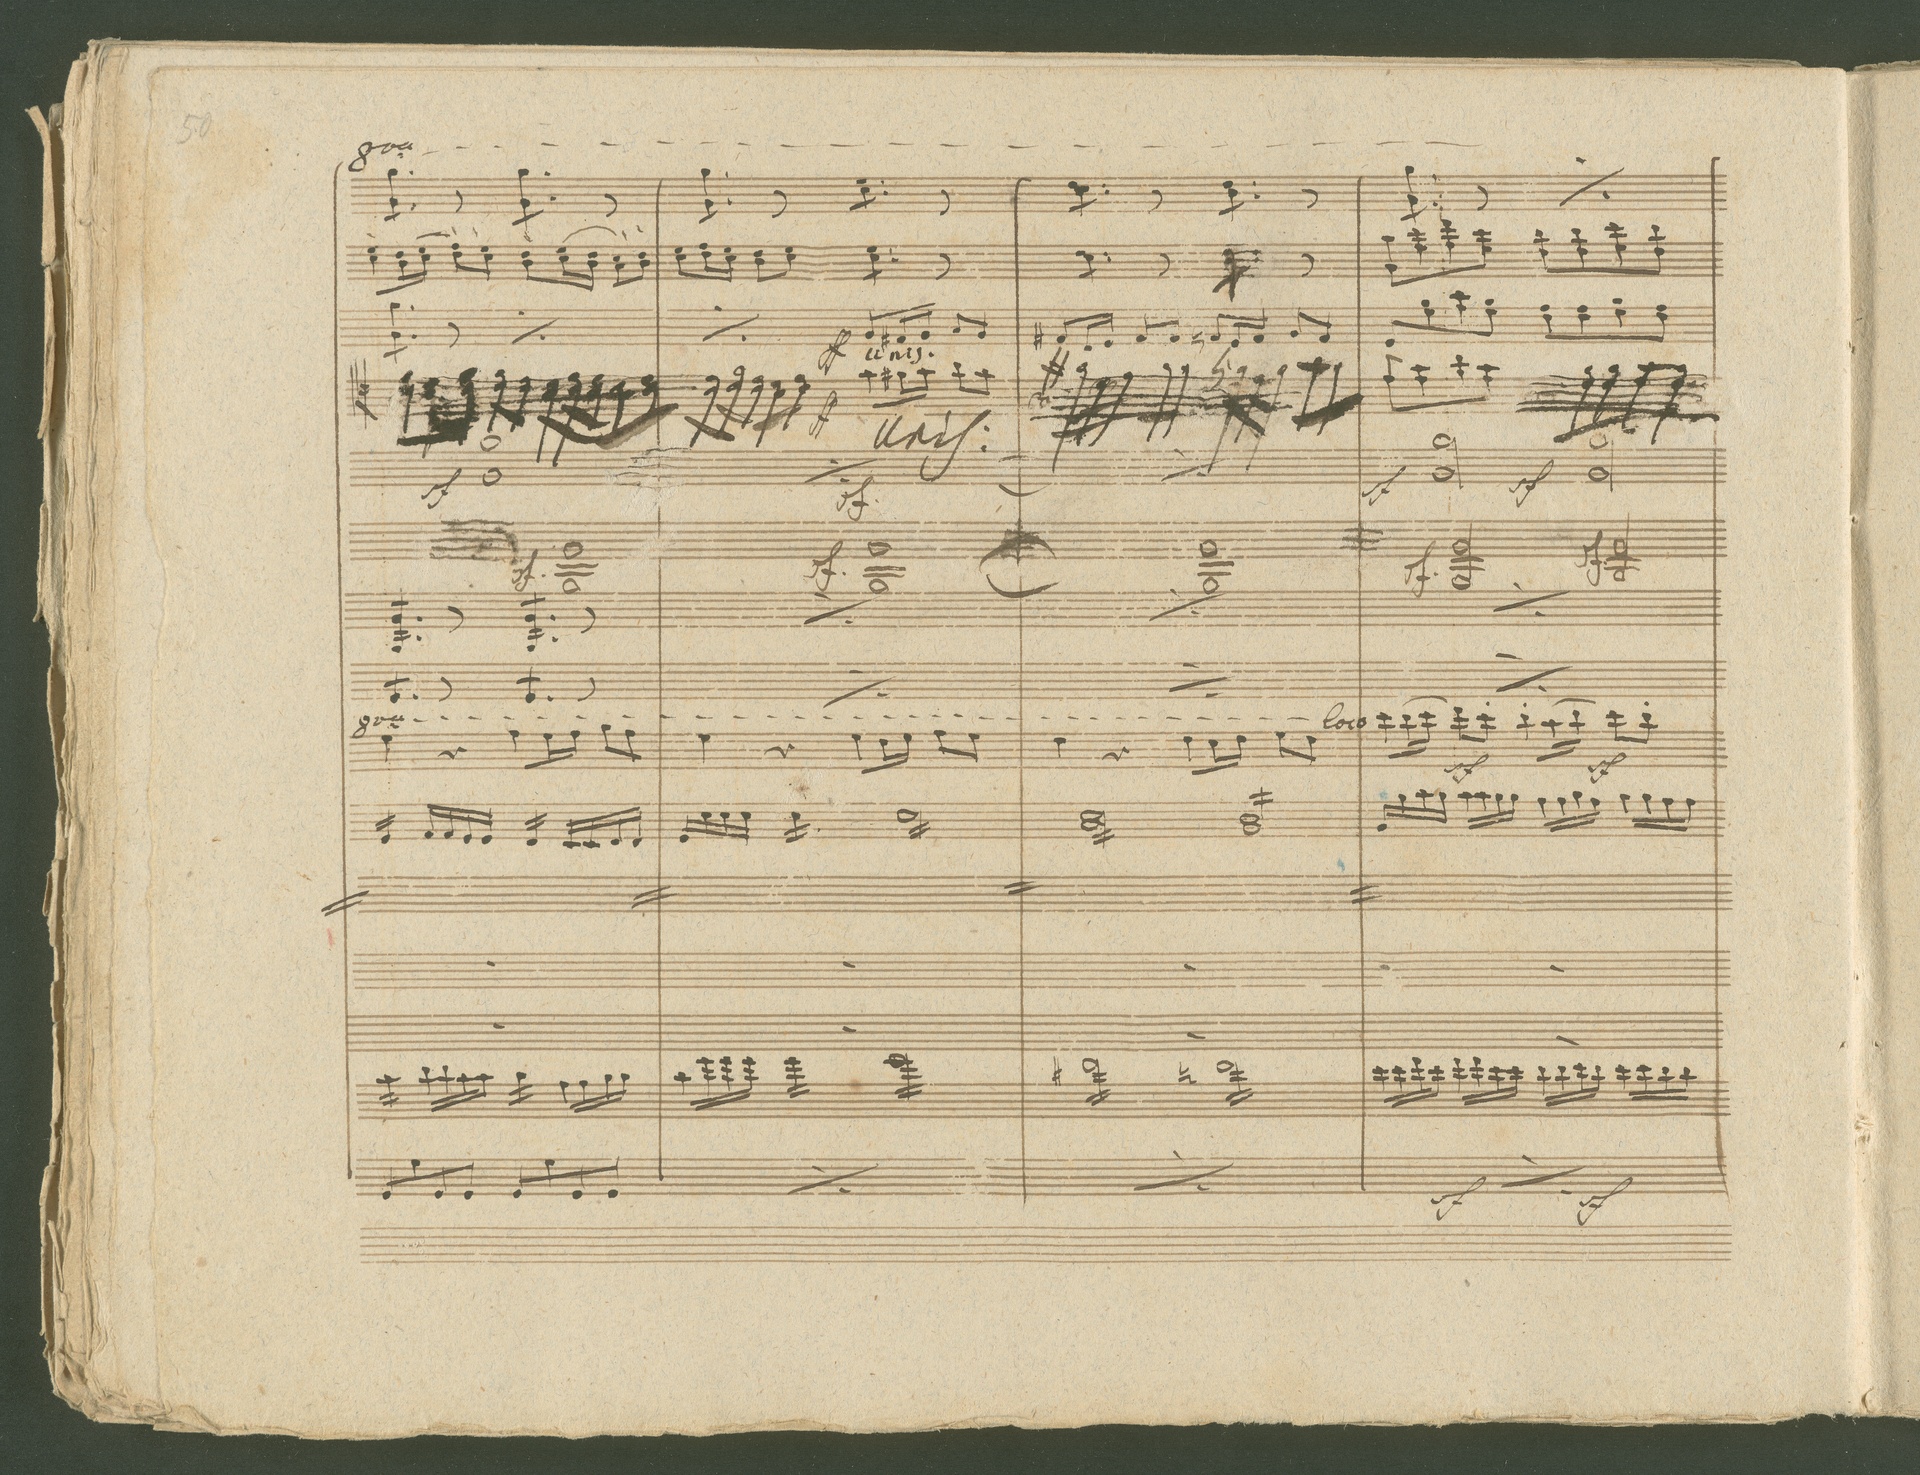 50
8va
ff unis.
ff unis:
sf
sf.
sf
sf
sf.
sf.
sf.
sf
8va
loco
sf
sf
sf
sf